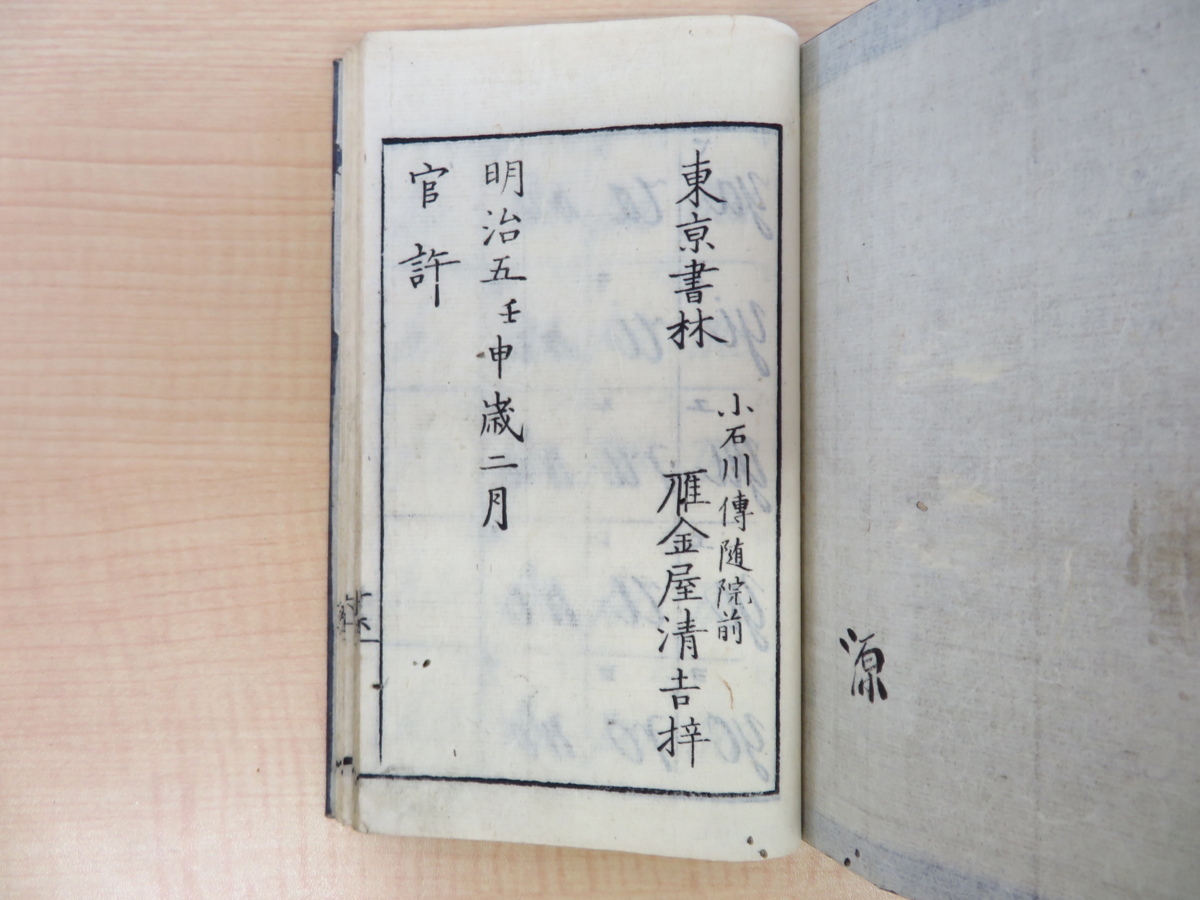 源
東京書林
小石川傳随院前
雁金屋清吉梓
明治五壬申歳二月
官許